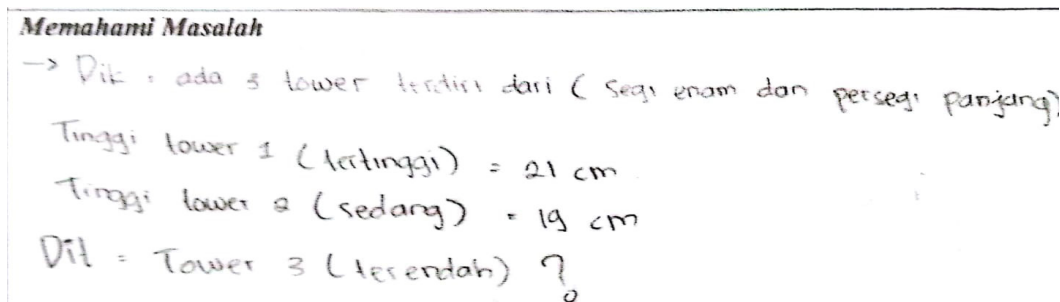 Memahami Masalah
-> Dik : ada 3 tower terdiri dari ( segi enam dan persegi panjang)
Tinggi tower 1 (tertinggi) = 21 cm
Tinggi tower 2 (sedang) = 19 cm
Dit = Tower 3 (terendah) ?